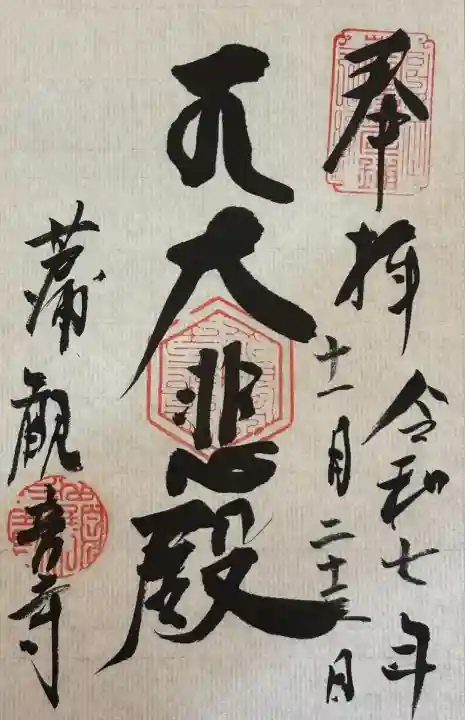 奉拝
令和七年
十一月二十三日
大悲殿
芦浦観音寺